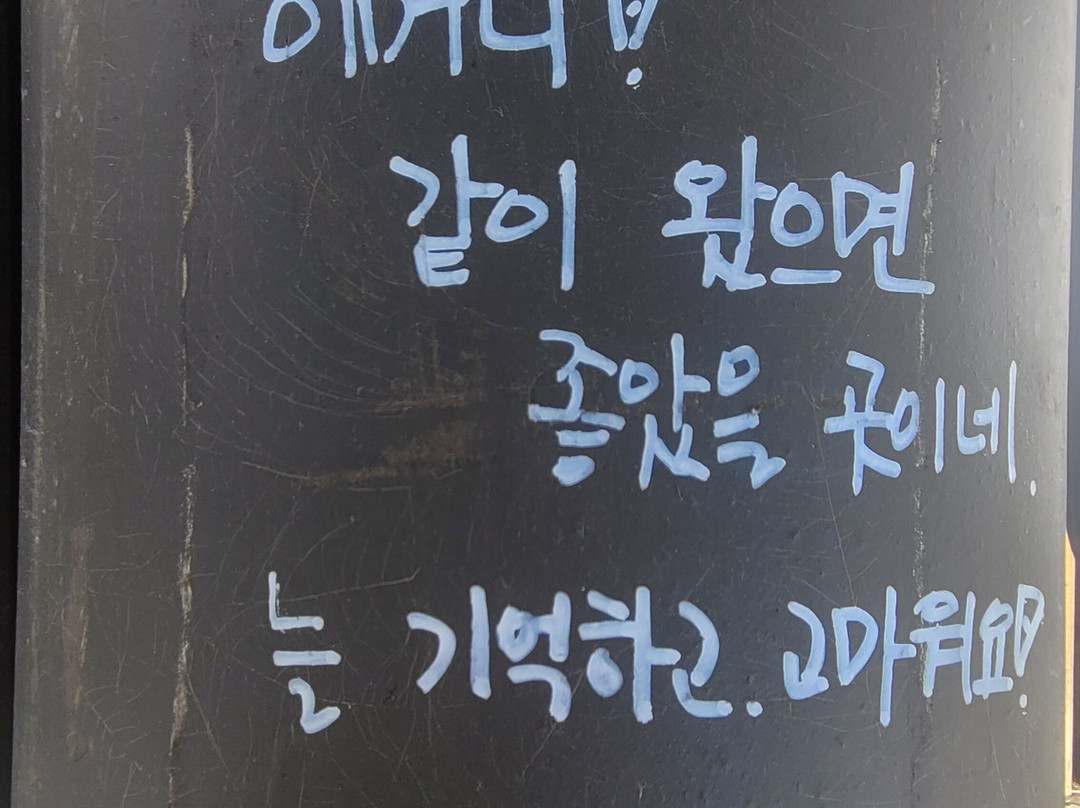 어머니!
같이 왔으면
좋았을 곳이네.
늘 기억하고. 고마워요!